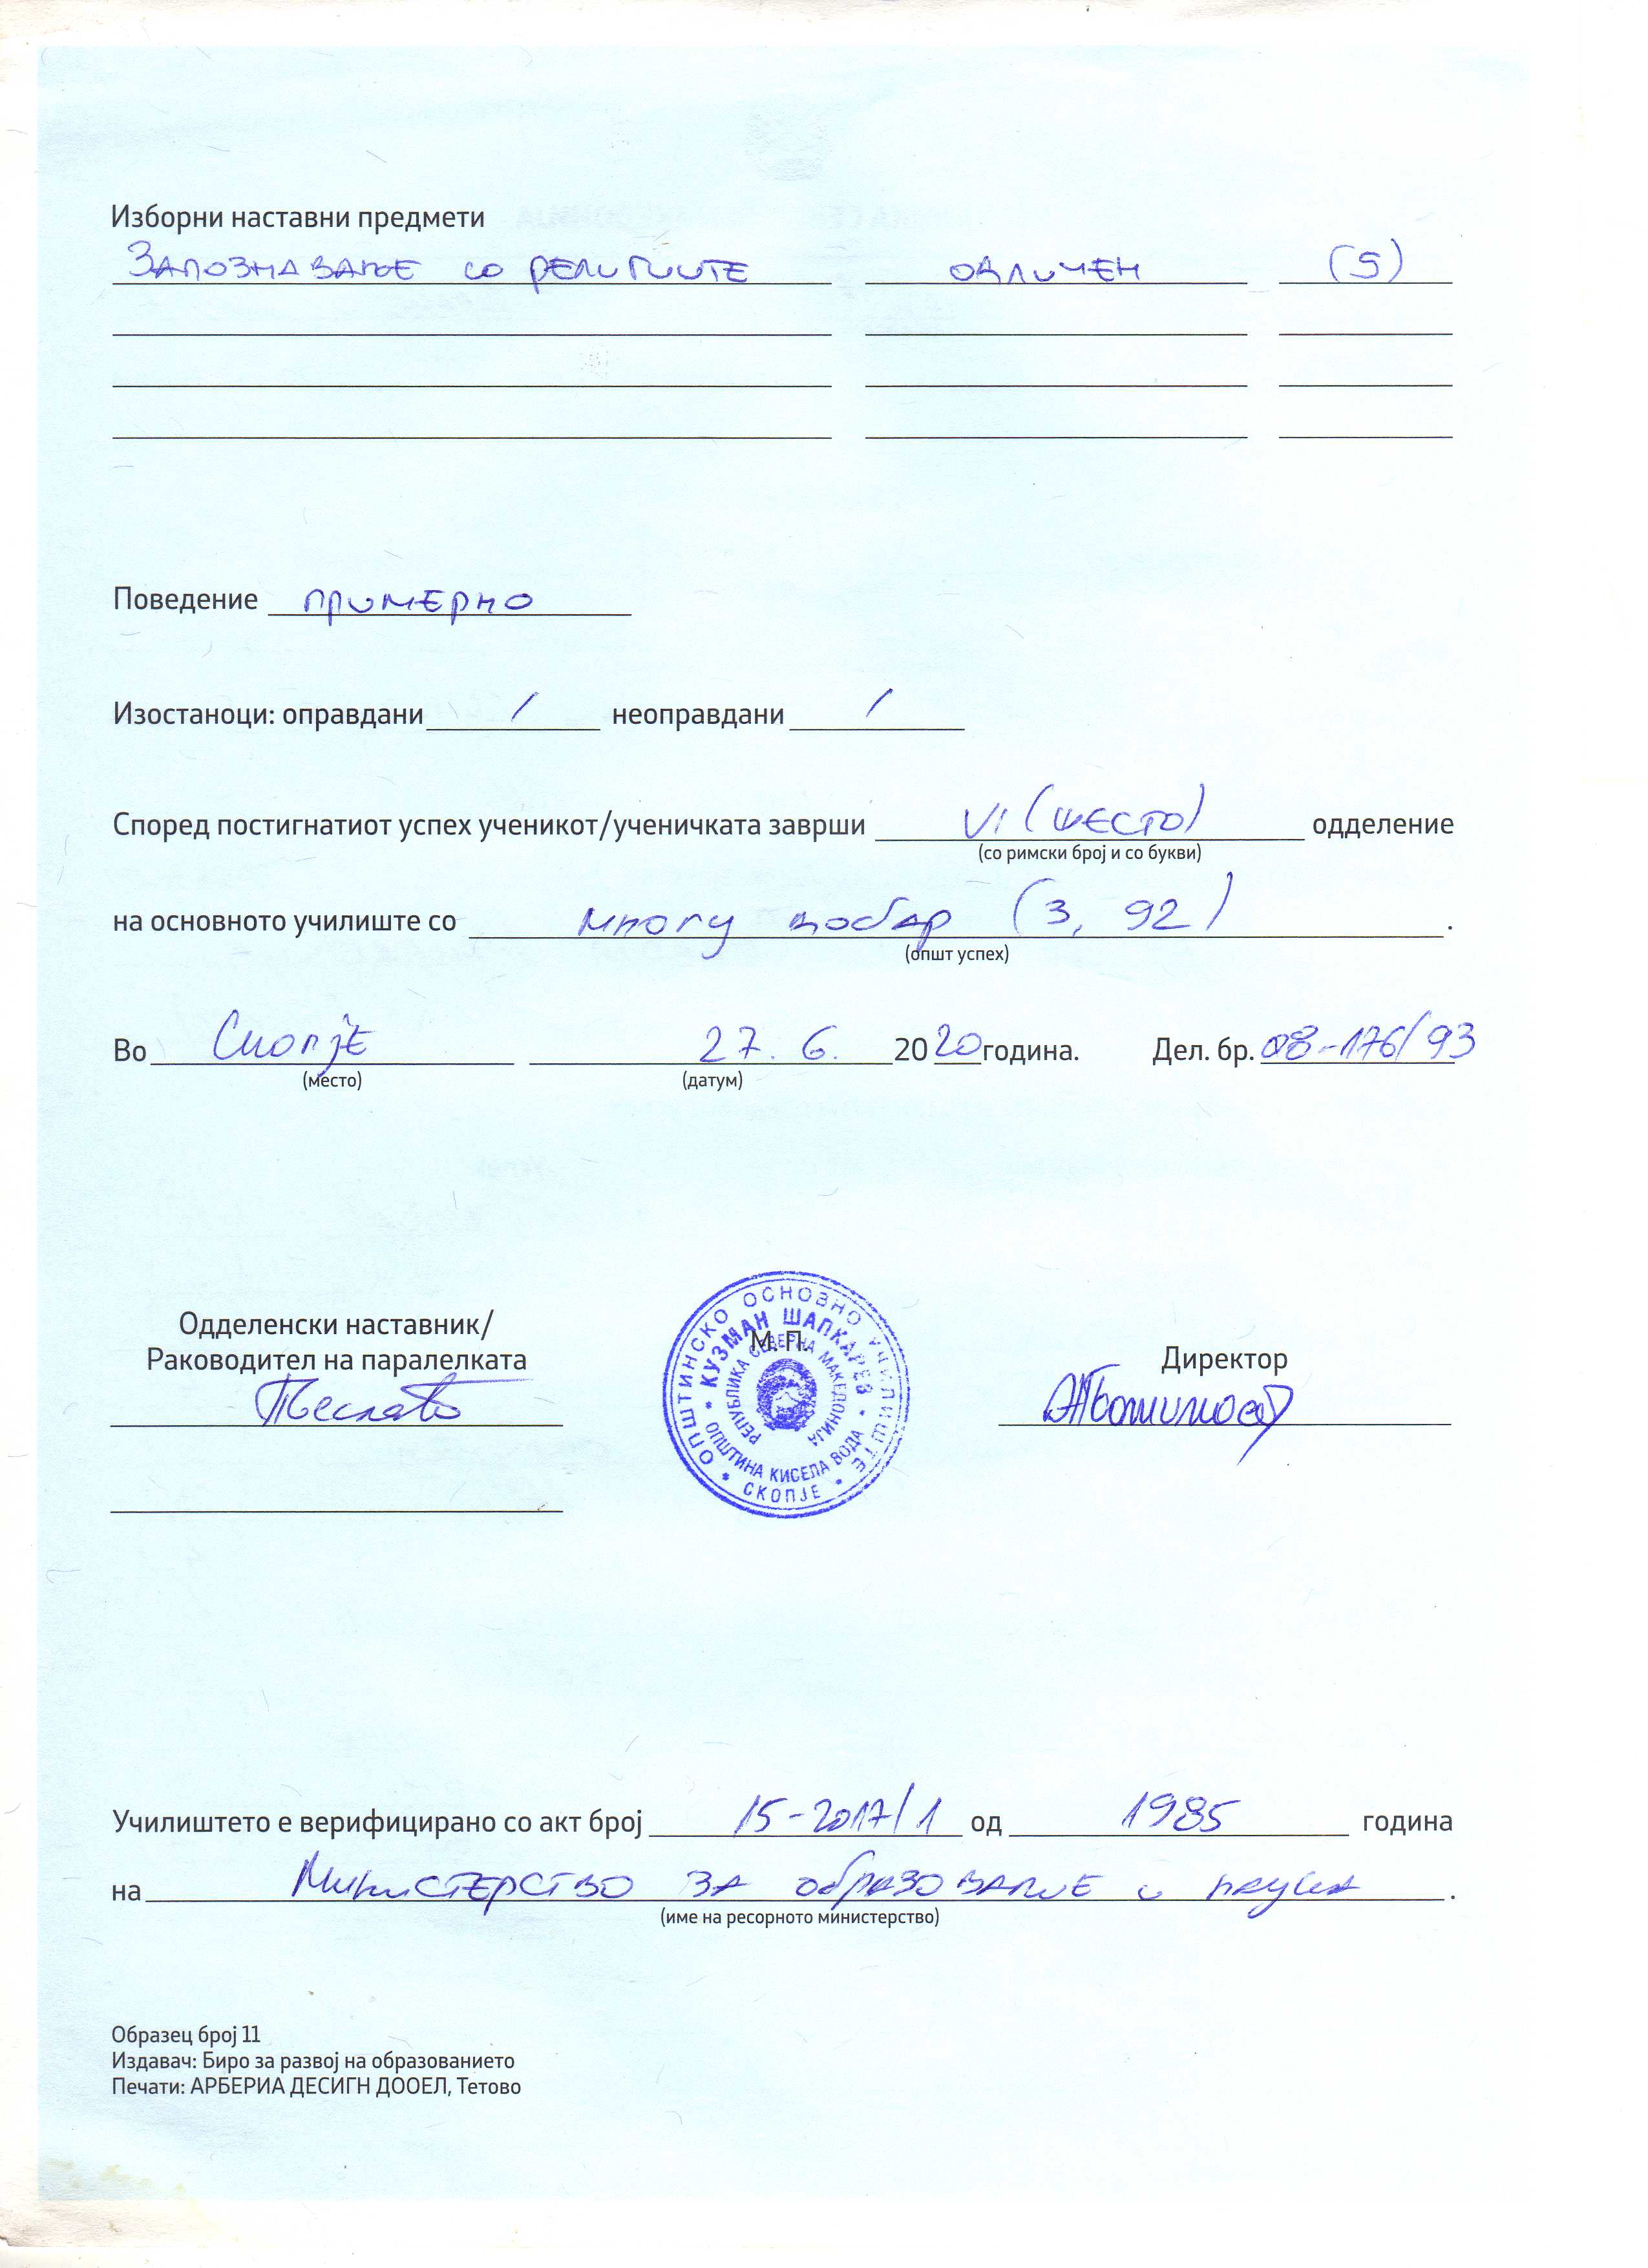 Изборни наставни предмети
Запознавање со религиите одличен (5)
Поведение примерно
Изостаноци: оправдани / неоправдани /
Според постигнатиот успех ученикот/ученичката заврши VI (шесто) одделение
(со римски број и со букви)
на основното училиште со многу добар (3,92).
(општ успех)
Во Скопје 27. 6. 2020 година. Дел. бр. 08-176/93
(место) (датум)
Одделенски наставник/
Раководител на паралелката
М. П.
Директор
ОПШТИНСКО ОСНОВНО УЧИЛИШТЕ
КУЗМАН ШАПКАРЕВ
РЕПУБЛИКА СЕВЕРНА МАКЕДОНИЈА
ОПШТИНА КИСЕЛА ВОДА
СКОПЈЕ
Училиштето е верифицирано со акт број 15-2017/1 од 1985 година
на Министерство за образование и наука.
(име на ресорното министерство)
Образец број 11
Издавач: Биро за развој на образованието
Печати: АРБЕРИА ДЕСИГН ДООЕЛ, Тетово